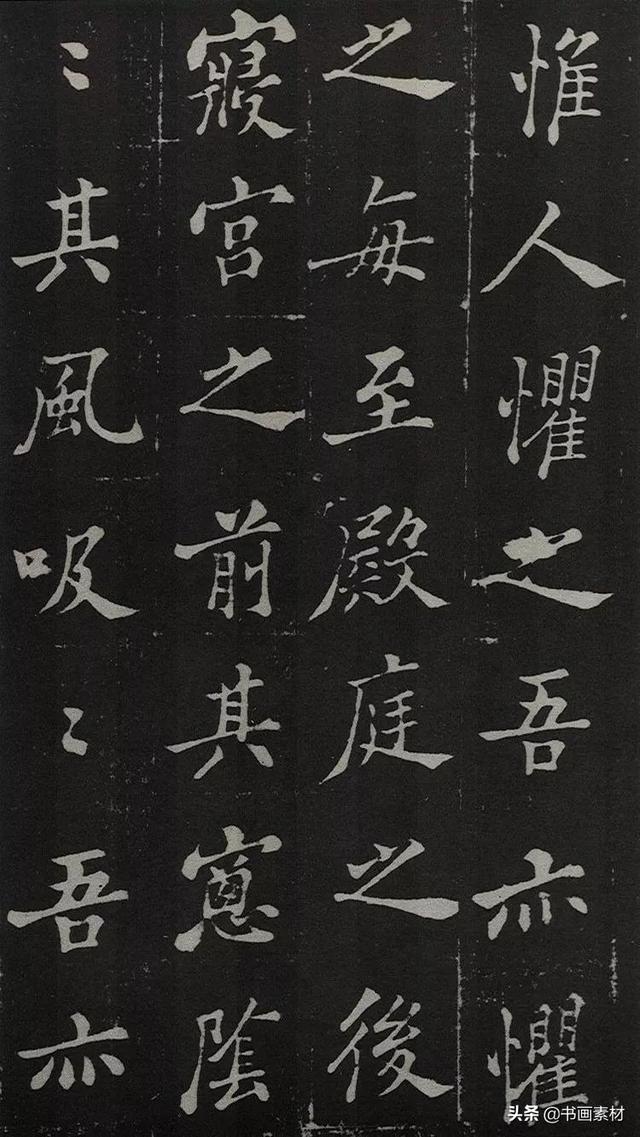 惟人懼之吾亦懼
之每至殿庭之後
寢宮之前其窻陰
〻其風吸〻吾亦
头条 @书画素材